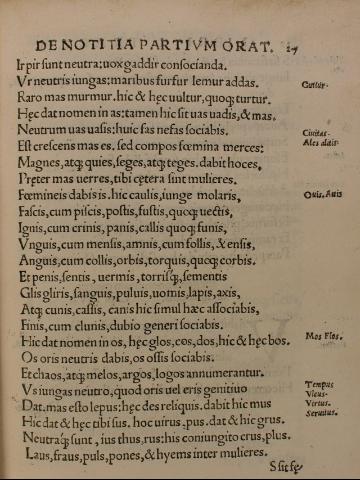 DE NOTITIA PARTIVM ORAT. 27
Ir pir sunt neutra: uox gaddir consocianda.
Vr neutris iungas: maribus furfur lemur addas. Guttur.
Raro mas murmur. hic & hęc uultur, quoq; turtur.
Hęc dat nomen in as: tamen hic sit uas uadis, & mas.
Neutrum uas uasis: huic fas nefas sociabis. Ciuitas.
Est crescens mas es. sed compos fœmina merces: Ales alitis
Magnes, atq; quies, seges, atq; teges. dabit hoc es,
Pręter mas uerres, tibi cętera sint mulieres.
Fœmineis dabis is. hic caulis, iunge molaris, Ouis. Auis
Fascis, cum piscis, postis, fustis, quoq; uectis,
Ignis, cum crinis, panis, callis quoq; funis,
Vnguis, cum mensis, amnis, cum follis, & ensis,
Anguis, cum collis, orbis, torquis, quoq; corbis.
Et penis, sentis, uermis, torrisq;, sementis
Glis gliris, sanguis, puluis, uomis, lapis, axis,
Atq; cunis, cassis, canis hic simul hæc associabis,
Finis, cum clunis, dubio generi sociabis.
Hic dat nomen in os, hęc glos, cos, dos, hic & hęc bos. Mos Flos.
Os oris neutris dabis, os ossis sociabis.
Et chaos, atq; melos, argos, logos annumerantur.
Vs iungas neutro, quod oris uel eris genitiuo Tempus
Dat. mas esto lepus: hęc des reliquis. dabit hic mus Vicus.
Virtus.
Hic dat & hęc tibi sus. hoc uirus, pus. dat & hic grus. Seruitus.
Neutraq; sunt, ius thus, rus: his coniungito crus, plus.
Laus, fraus, puls, pones, & hyems inter mulieres.
S sit sę